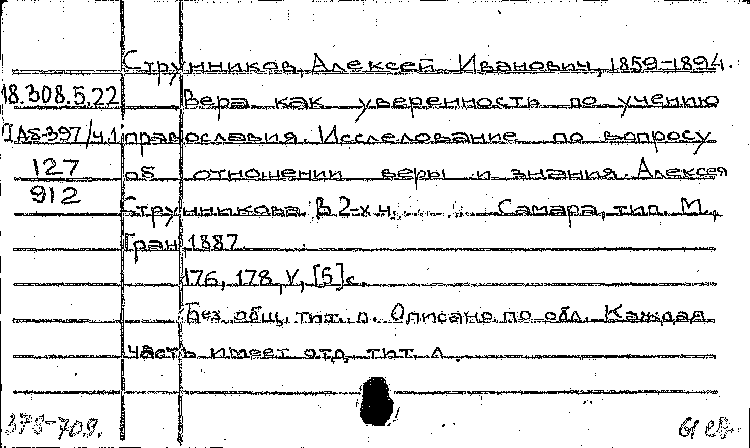 Струнников, Алексей Иванович, 1859-1894.
18.308.5.22 Вера как уверенность по учению
православия. Исследование по вопросу
127 об отношении веры и знания Алексея
912 Струнникова. В 2-х ч. Самара, тип. М.
Гран, 1887.
176, 178, V, [5] с.
Без общ. тит. л. Описано по обл. Каждая
часть имеет отд. тит. л.
378-709.